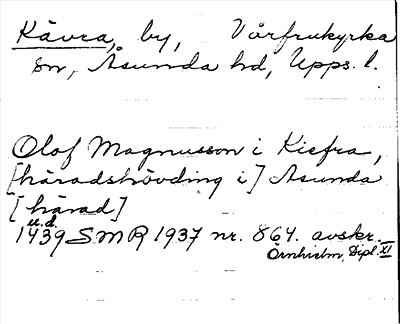 Kävra, by, Vårfrukyrka
sn, Åsunda hd, Upps. l.
Olof Magnusson i Kiefra,
[häradshövding i] Asunda
[härad]
u.d.
1439 SMR 1937 nr. 864. avskr.
Örnhielm, Dipl. XI